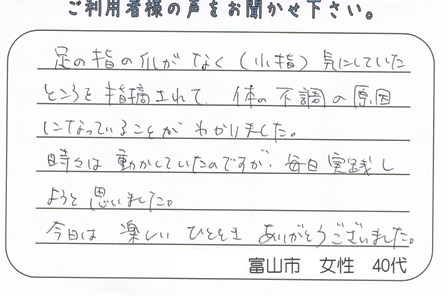 ご利用者様の声をお聞かせ下さい。
足の指の爪がなく(小指)気にしていた
ところを指摘されて、体の不調の原因
になっていることがわかりました。
時々は動かしていたのですが、毎日実践し
ようと思いました。
今日は楽しいひととき ありがとうございました。
富山市 女性 40代